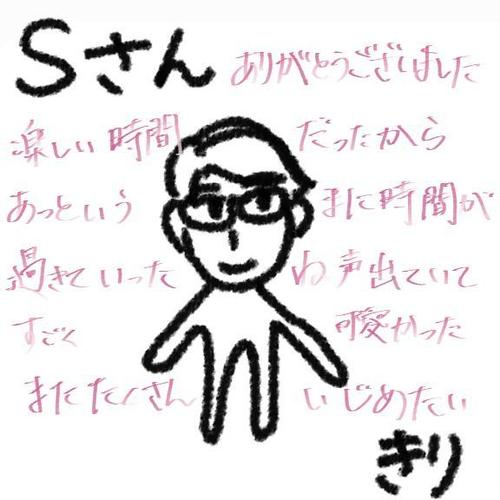 Sさん ありがとうございました
楽しい時間 だったから
あっという まに時間が
過ぎていった ね声出ていて
すごく 可愛かった
またたくさん いじめたい
きり